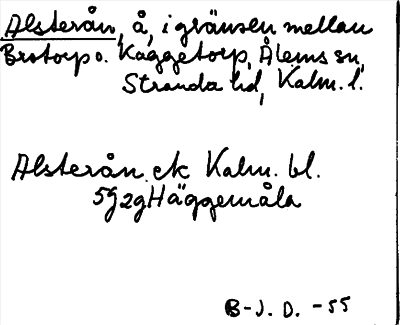 Alsterån, å, i gränsen mellan
Brotorp o. Kaggetorp, Ålems sn,
Stranda hd, Kalm. l.
Alsterån ek Kalm. bl.
5G2g Häggemåla
B-J. D. -55